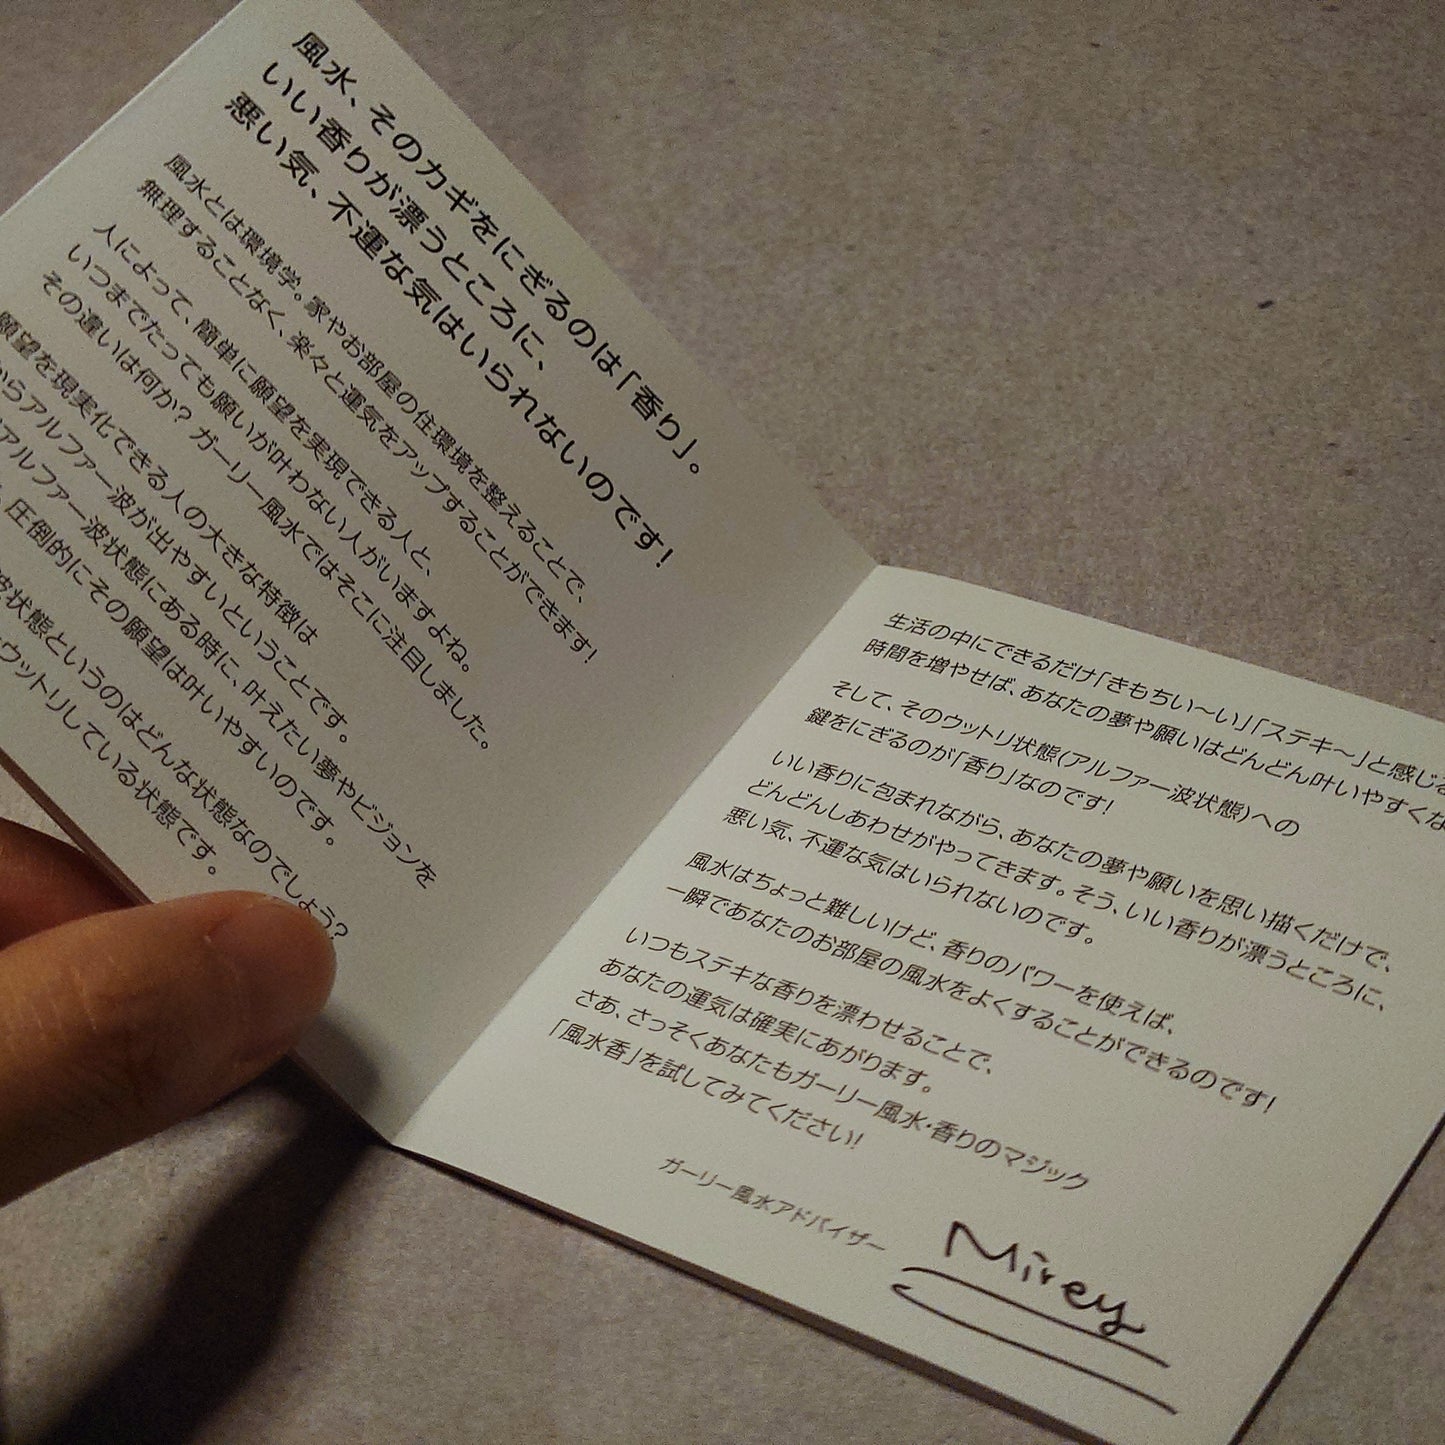 風水、そのカギをにぎるのは「香り」。
いい香りが漂うところに、
悪い気、不運な気はいられないのです!
風水とは環境学。家やお部屋の住環境を整えることで、
無理することなく、楽々と運気をアップすることができます!
人によって、簡単に願望を実現できる人と、
いつまでたっても願いが叶わない人がいますよね。
その違いは何か? ガーリー風水ではそこに注目しました。
願望を現実化できる人の大きな特徴は
からアルファー波が出やすいということです。
アルファー波状態にある時に、叶えたい夢やビジョンを
圧倒的にその願望は叶いやすいのです。
波状態というのはどんな状態なのでしょう?
ウットリしている状態です。
生活の中にできるだけ「きもちい〜い」「ステキ〜」と感じる
時間を増やせば、あなたの夢や願いはどんどん叶いやすくな
そして、そのウットリ状態(アルファー波状態)への
鍵をにぎるのが「香り」なのです!
いい香りに包まれながら、あなたの夢や願いを思い描くだけで、
どんどんしあわせがやってきます。そう、いい香りが漂うところに、
悪い気、不運な気はいられないのです。
風水はちょっと難しいけど、香りのパワーを使えば、
一瞬であなたのお部屋の風水をよくすることができるのです!
いつもステキな香りを漂わせることで、
あなたの運気は確実にあがります。
さあ、さっそくあなたもガーリー風水・香りのマジック
「風水香」を試してみてください!
ガーリー風水アドバイザー Mirey